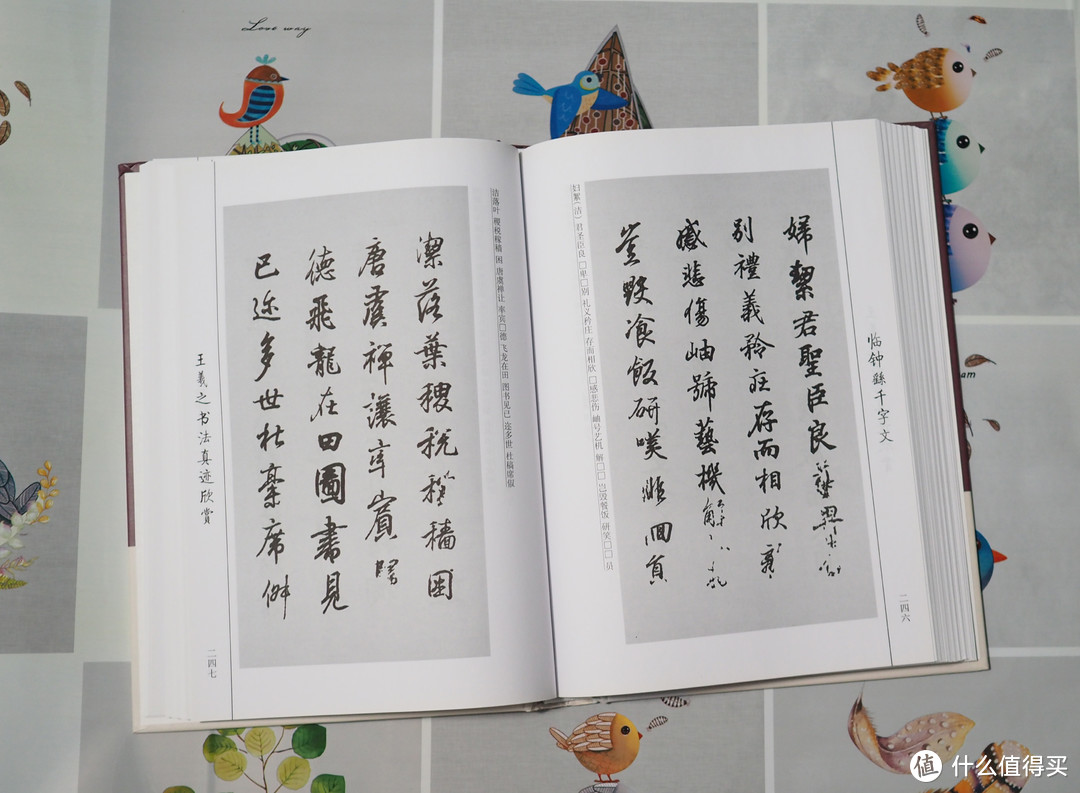 Love way
临钟繇千字文
二四六
婦絜君聖臣良
別禮義矜莊存而相欣
感悲傷岫號藝機解
豈毀飡飯研
妇絜(洁) 君圣臣良 □卑□别 礼义矜庄 存面相欣 □感悲伤 岫号艺机 解□□ 岂毁餐饭 研笑□□员
潔落葉稷稅稼穡困
唐虞禪讓率賓
德飛龍在田圖書見
已迩多世杜稾席
洁落叶 稷税稼穑 困 唐虞禅让 率宾□德 飞龙在田 图书见已 迩多世 杜稿席俶
王羲之书法真迹欣赏
二四七
值 什么值得买